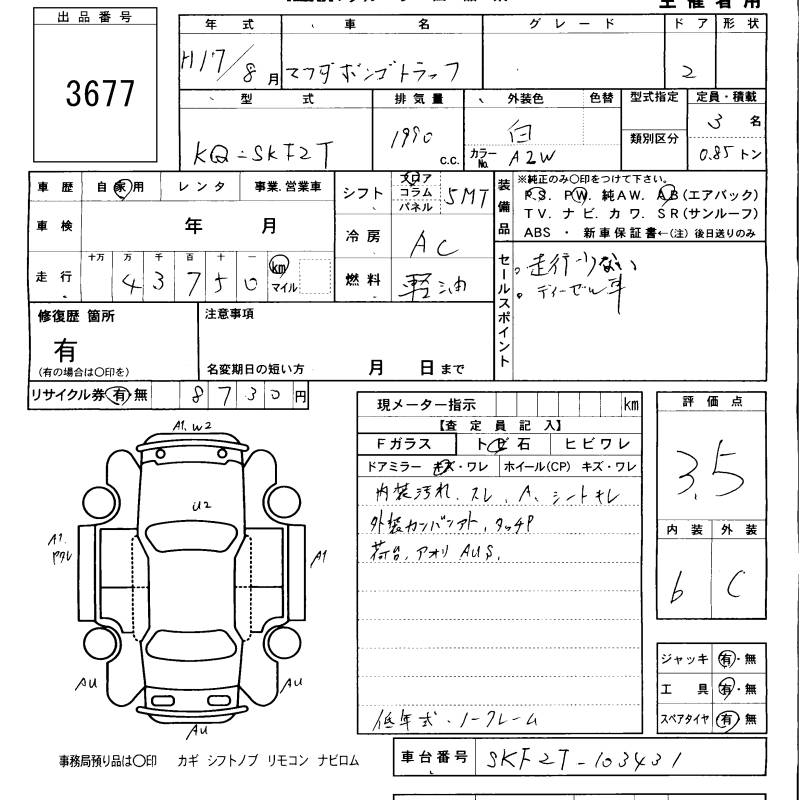 主催者用
出品番号
3677
年式 車名 グレード ドア 形状
H17/8月 マツダボンゴトラック 2
型式 排気量 外装色 色替 型式指定 定員・積載
KQ-SKF2T 1990 c.c. 白 類別区分 3名
カラーNo. A2W 0.85トン
車歴 自家用 レンタ 事業.営業車
シフト フロア コラム パネル 5MT
装備品 ※純正のみ〇印をつけて下さい。
P.S. PW. 純AW. AB(エアバック)
TV. ナビ. カワ. SR(サンルーフ)
ABS ・ 新車保証書←(注) 後日送りのみ
車検 年 月
冷房 AC
走行 十万 万 千 百 十 一
43750 km マイル
燃料 軽油
セールスポイント
。走行少ない
。ディーゼル車
修復歴 箇所
有
(有の場合は〇印を)
注意事項
名変期日の短い方 月 日まで
リサイクル券 有・無 8730円
現メーター指示 km
【査定員記入】
Fガラス トビ石 ヒビワレ
ドアミラー キズ・ワレ ホイール(CP) キズ・ワレ
内装汚れ、スレ、A、シートキレ
外装カンバンアト、タッチP
荷台、アオリ AUS.
低年式・ノークレーム
評価点
3.5
内装 外装
b C
A1, W2
U2
A1
A1
AU
AU
AU
ジャッキ 有・無
工具 有・無
スペアタイヤ 有・無
事務局預り品は〇印 カギ シフトノブ リモコン ナビロム
車台番号 SKF2T-103431